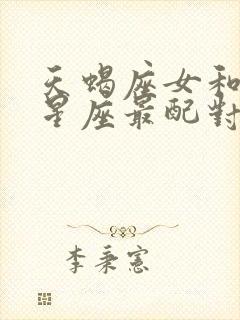 天蝎座女和
星座最配對
李秉憲